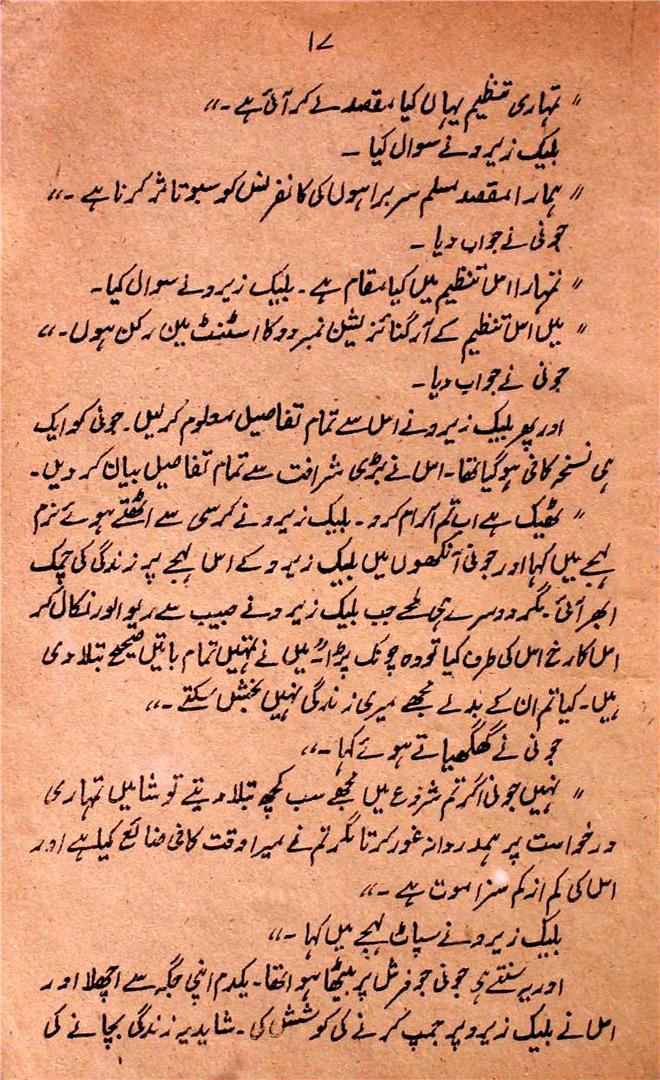 ۱۷
" تمہاری تنظیم یہاں کیا مقصد لے کر آئی ہے ۔"
بلیک زیرو نے سوال کیا ۔
" ہمارا مقصد مسلم سربراہوں کی کانفرنس کو سبوتاثر کرنا ہے ۔"
جونی نے جواب دیا ۔
" تمہارا اس تنظیم میں کیا مقام ہے ۔ بلیک زیرو نے سوال کیا۔
" میں اس تنظیم کے آرگنائزیشن نمبر دو کا اسٹنٹ مین رکن ہوں ۔"
جونی نے جواب دیا ۔
اور پھر بلیک زیرو نے اس سے تمام تفاصیل معلوم کر لیں ۔ جونی کو ایک
ہی نسخہ کافی ہو گیا تھا ۔ اس نے بڑی شرافت سے تمام تفاصیل بیان کر دیں ۔
" ٹھیک ہے اب تم آرام کرو ۔ بلیک زیرو نے کرسی سے اٹھتے ہوئے نرم
لہجے میں کہا اور جونی آنکھوں میں بلیک زیرو کے اس لہجے پر زندگی کی چمک
ابھر آئی ۔ مگر دوسرے ہی لمحے جب بلیک زیرو نے جیب سے ریوالور نکال کر
اس کا رخ اس کی طرف کیا تو وہ چونک پڑا ۔ "میں نے تمہیں تمام باتیں صحیح بتلا دی
ہیں ۔ کیا تم ان کے بدلے مجھے میری زندگی نہیں بخش سکتے ۔"
جونی نے گھگھیاتے ہوئے کہا ۔"
" نہیں جونی اگر تم شروع میں مجھے سب کچھ بتلا دیتے تو شاید میں تمہاری
درخواست پر ہمدردانہ غور کرتا مگر تم نے میرا وقت کافی ضائع کیا ہے اور
اس کی کم از کم سزا موت ہے ۔"
بلیک زیرو نے سپاٹ لہجے میں کہا ۔"
اور یہ سنتے ہی جونی جو فرش پر بیٹھا ہوا تھا ۔ یکدم اپنی جگہ سے اچھلا اور
اس نے بلیک زیرو پر جمپ کرنے کی کوشش کی ۔ شاید یہ زندگی بچانے کی